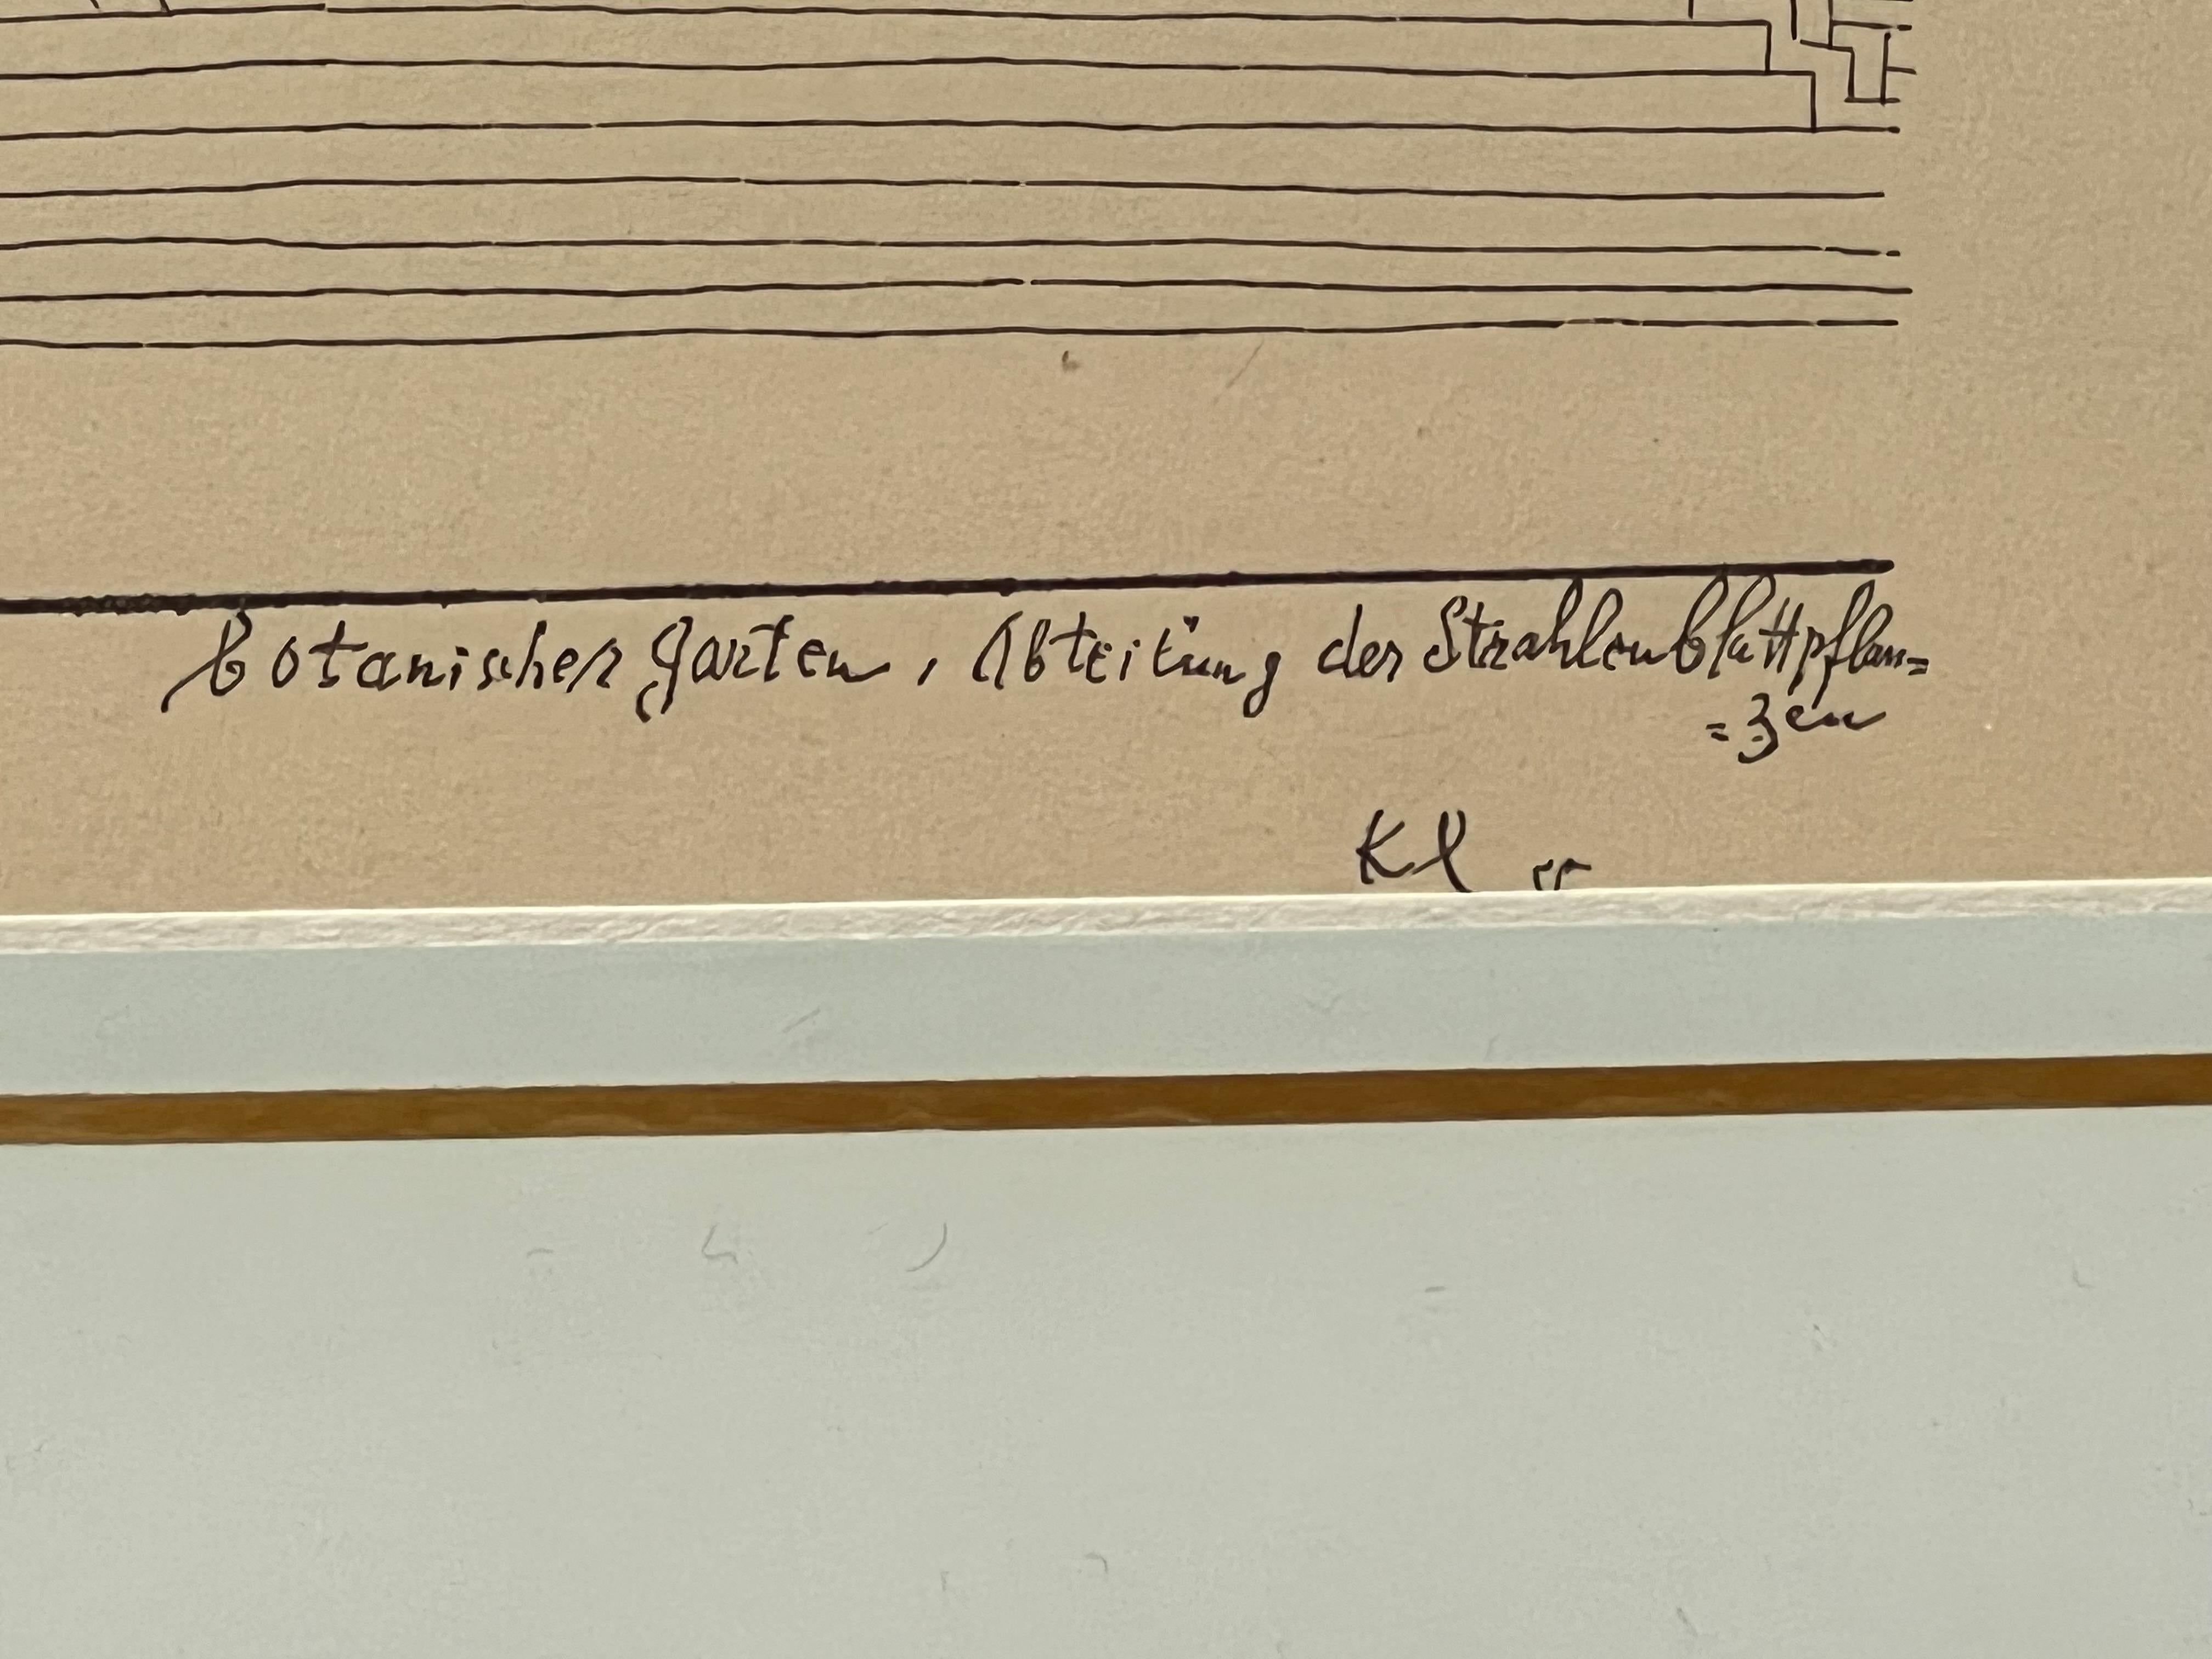 botanischer Garten, Abteilung der Strahlenblattpflan=
=zen
Kl